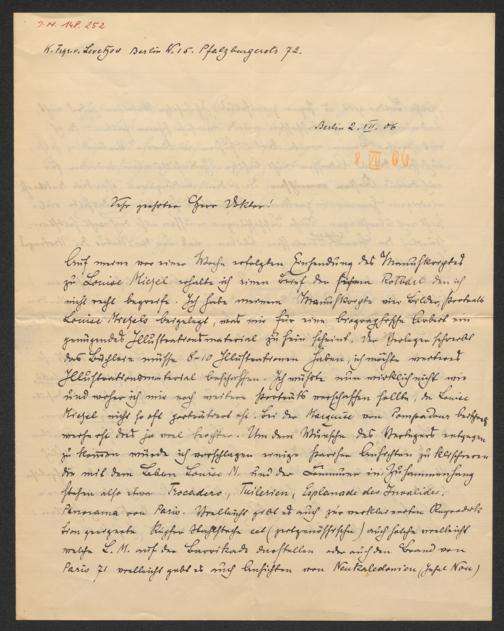 I.N. 148.252
K. Frhr. v. Levetzow Berlin W. 15. Pfalzburgerstr 72.
Berlin 2. VII. 06
8. VII. 06
Sehr geehrter Herr Doktor!
Auf meine vor einer Woche erfolgten Einsendung des Manuskriptes
zu Louise Michel erhalte ich einen Brief der Firma Rotbart den ich
nicht recht begreife. Ich habe meinem Manuskripte vier Bilder, Porträts
Louise Michels beigelegt, was mir für eine biographische Arbeit ein
genügendes Illustrationsmaterial zu sein scheint. Der Verleger schreibt
das Büchlein müsse 8-10 Illustrationen haben, ich möchte weiteres
Illustrationsmaterial beschaffen. Ich wüßte nun wirklich nicht wie
und woher ich mir noch weitere Porträts verschaffen sollte, da Louise
Michel nicht so oft porträtiert ist. Bei der Marquise von Pompadour
wäre das ja wol leichter. Um dem Wunsche des Verlegers entgegen
zu kommen würde ich vorschlagen einige Pariser Ansichten zu klischieren
die mit dem Leben Louise M. und der Commune in Zusammenhang
stehen also etwa Trocadero, Tuilerien, Esplanade des Invalides.
Panorama von Paris. Vielleicht gibt es auch zur
geeignete, Kupfer Stahlstiche ect (zeitgenössische) auch solche vielleicht
welche L. M. auf der Barrikade darstellen oder auch den Brand von
Paris 71 vielleicht gibt es auch Ansichten von Neukaledonien (Insel Nou)